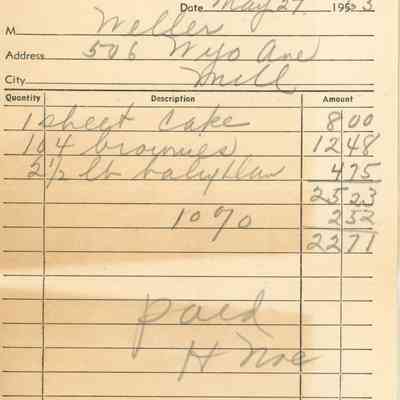 Date May 27 1953
M Weller
Address 506 Wyo Ave
City Mill
Quantity Description Amount
1 sheet cake 8 00
104 brownies 12 48
2 1/2 lb baby 4 75
25 23
10% 2 52
22 71
paid
H Noe